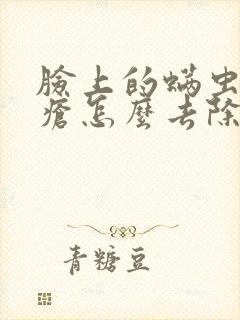 臉上的螨虫
瘡怎麼去除
青糖豆